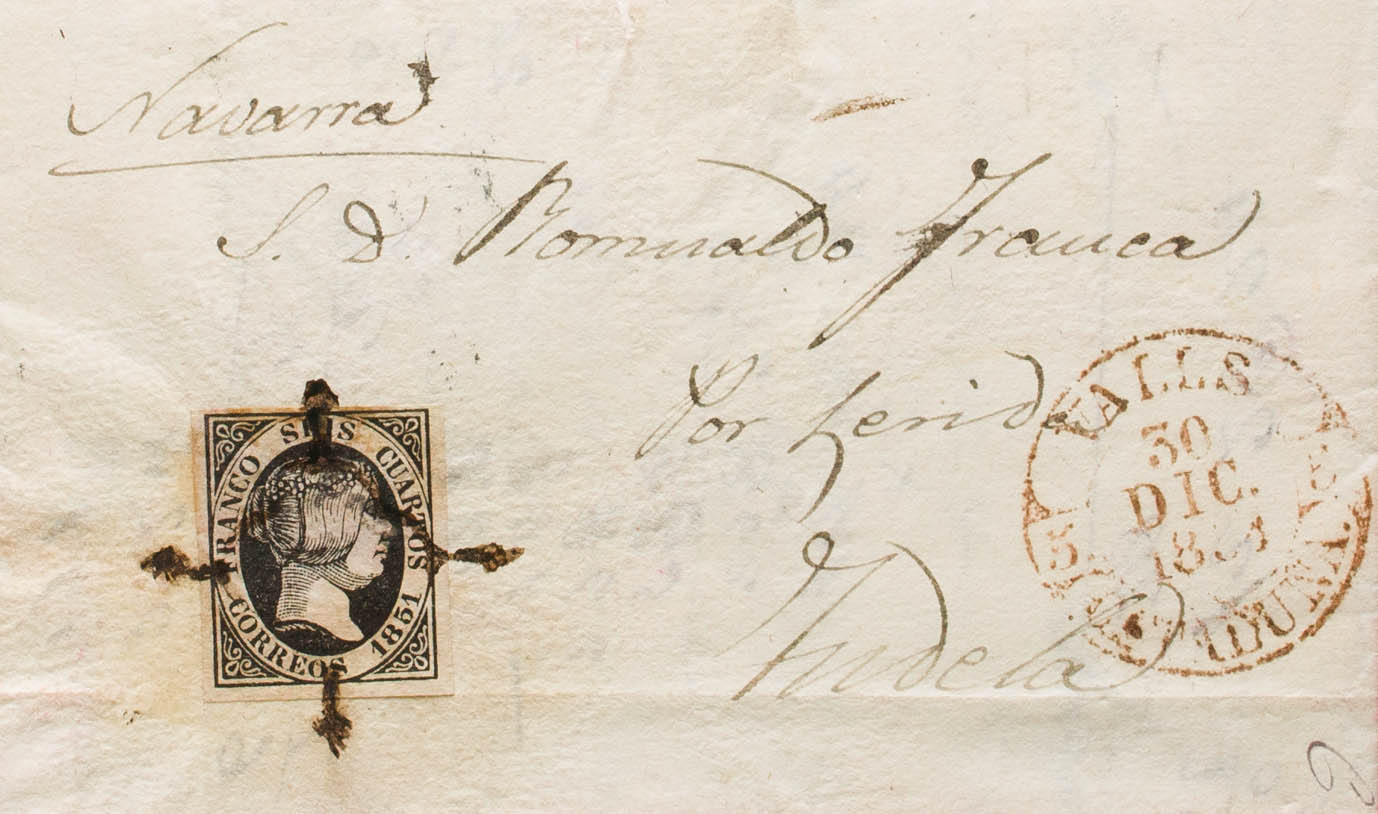 Navarra
S. D. Romualdo Franca
Por Lerida
Tudela
SEIS
FRANCO
CUARTOS
CORREOS 1851
VALLS
30
DIC.